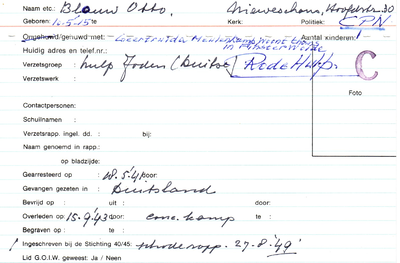 Naam etc.: Blouw Otto, Nieweschans, Hoofdstr. 30
Geboren: te Kerk: Politiek: CPN
Ongehuwd/gehuwd met: Geertruida Aantal kinderen:
Huidig adres en telef.nr.: in
Verzetsgroep : hulp Joden (Duitse) Rode Hulp
Verzetswerk :
C
Foto
Contactpersonen:
Schuilnamen :
Verzetsrapp. ingel. dd. : bij:
Naam genoemd in rapp.:
op bladzijde:
Gearresteerd op : 18.5.'41 door:
Gevangen gezeten in : Duitsland
Bevrijd op : uit : door:
Overleden op : 15.9.'43 door: conc. kamp te :
Begraven op : te :
Ingeschreven bij de Stichting 40/45: 27.8.'49
Lid G.O.I.W. geweest: Ja / Neen